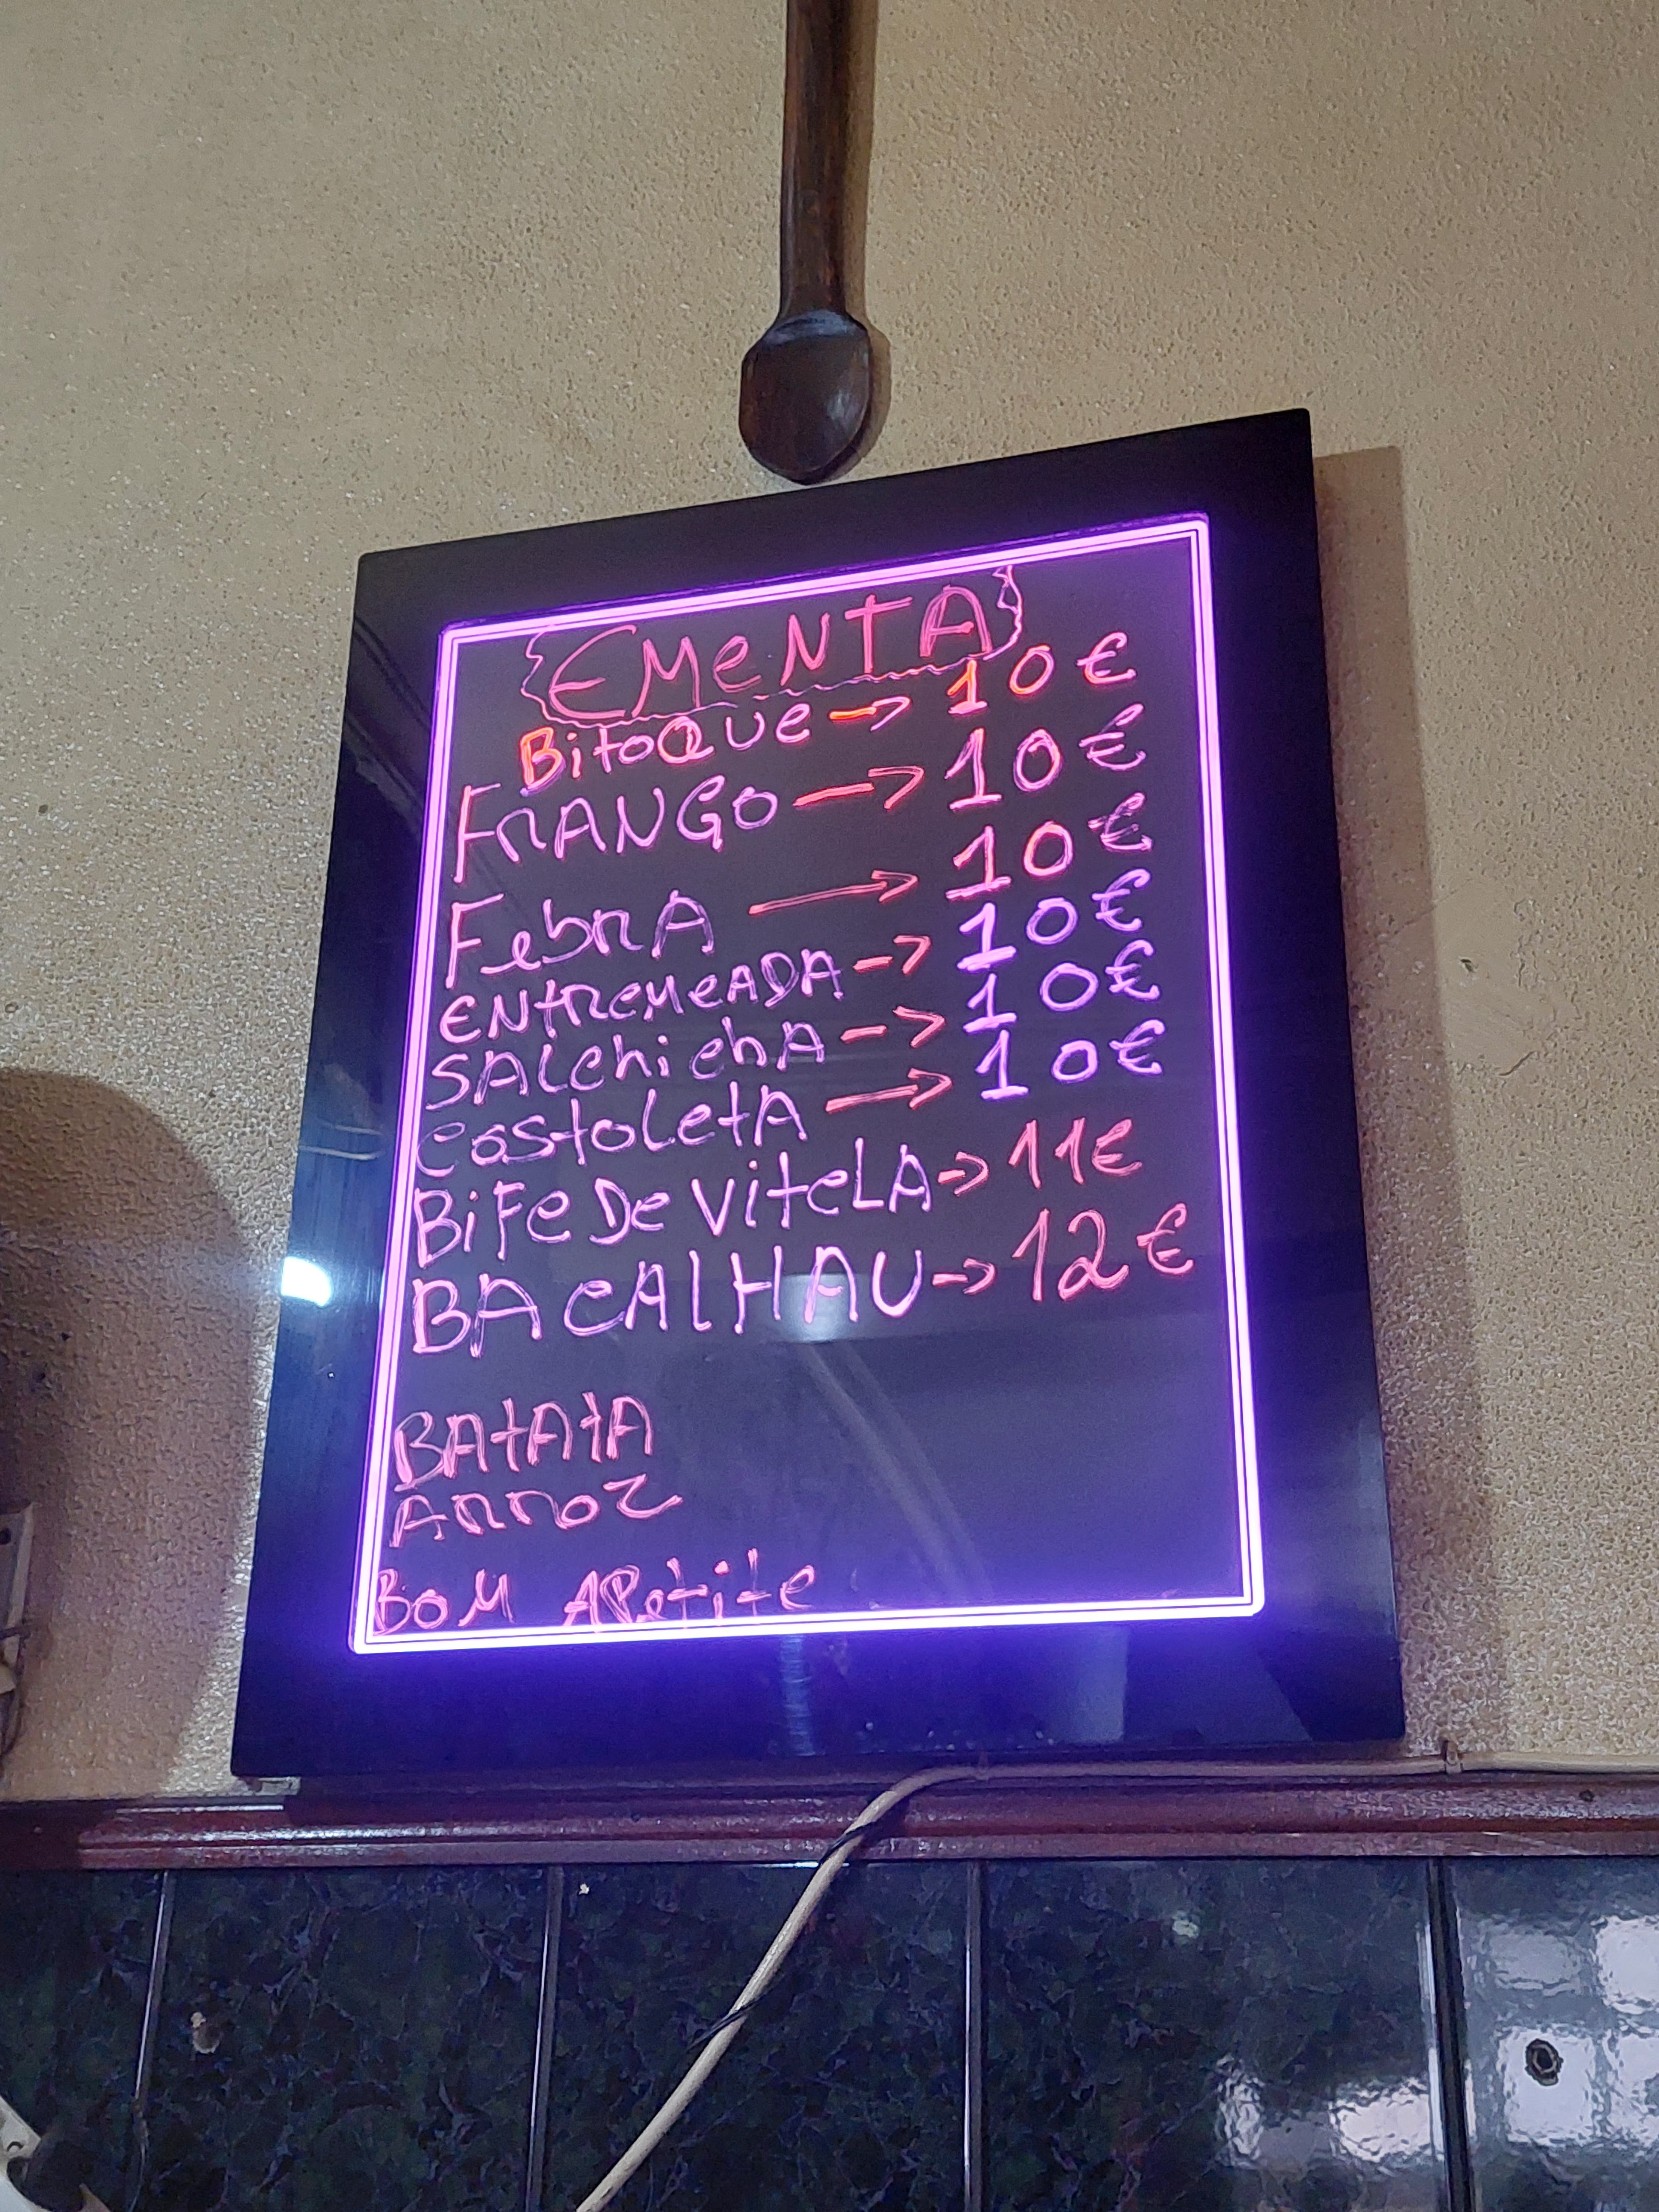 EMENTA
BitoQUe -> 10€
FRANGO -> 10€
FebRA -> 10€
ENtReMeADA -> 10€
SAlchichA -> 10€
costoLetA -> 10€
BiFe De ViteLA -> 11€
BACAlHAU -> 12€
BAtAtA
ARRoz
BoM APetite